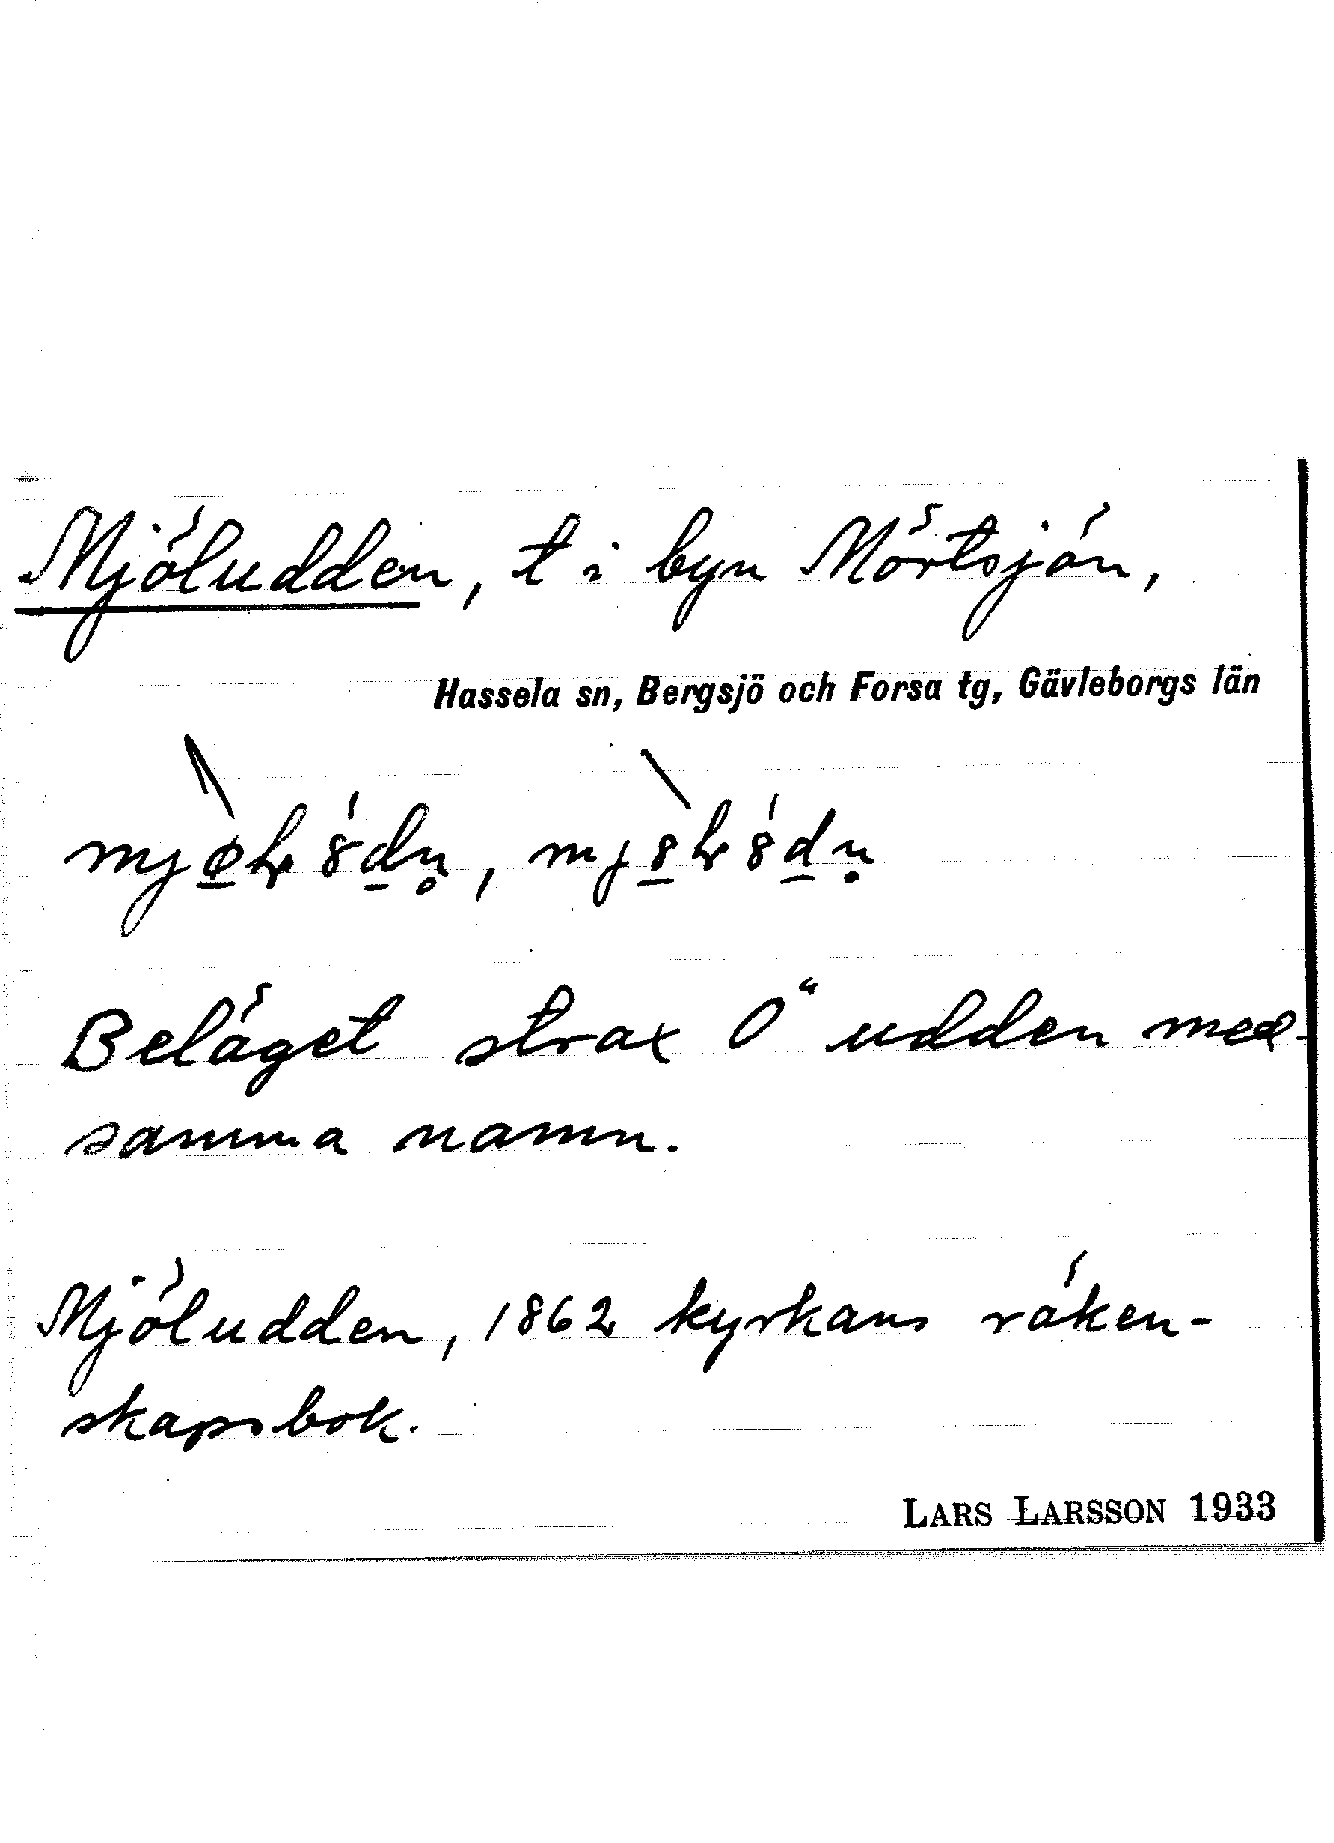 Mjöludden, t i byn Mörtsjön,
Hassela sn, Bergsjö och Forsa tg, Gävleborgs län
Beläget strax O" udden med
samma namn.
Mjöludden, 1862 kyrkans räken-
skapsbok.
LARS LARSSON 1933